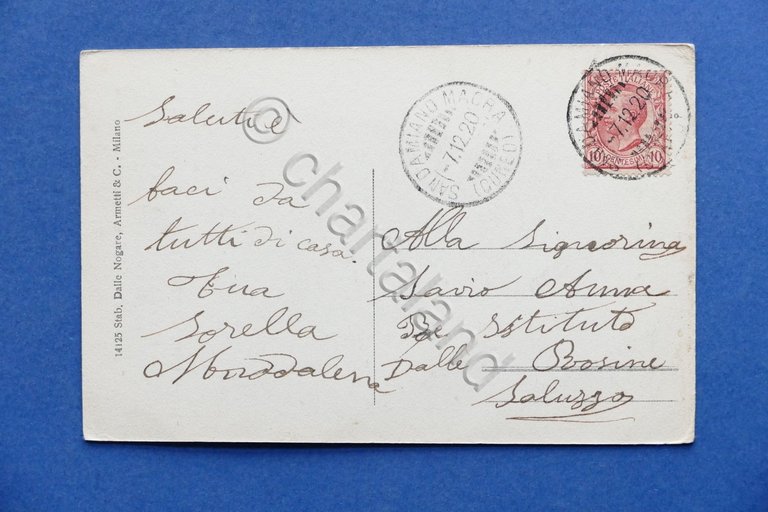 14125 Stab. Dalle Nogare, Armetti & C. - Milano
Saluti e
baci da
tutti di casa.
Tua
Sorella
Maddalena
SAN DAMIANO MACRA (CUNEO)
-7.12.20
DAMIANO MACRA
-7.12.20
POSTE ITALIANE
10 CENTESIMI 10
Alla Signorina
Savio Anna
Istituto
Dalle Rosine
Saluzzo
© chartaland